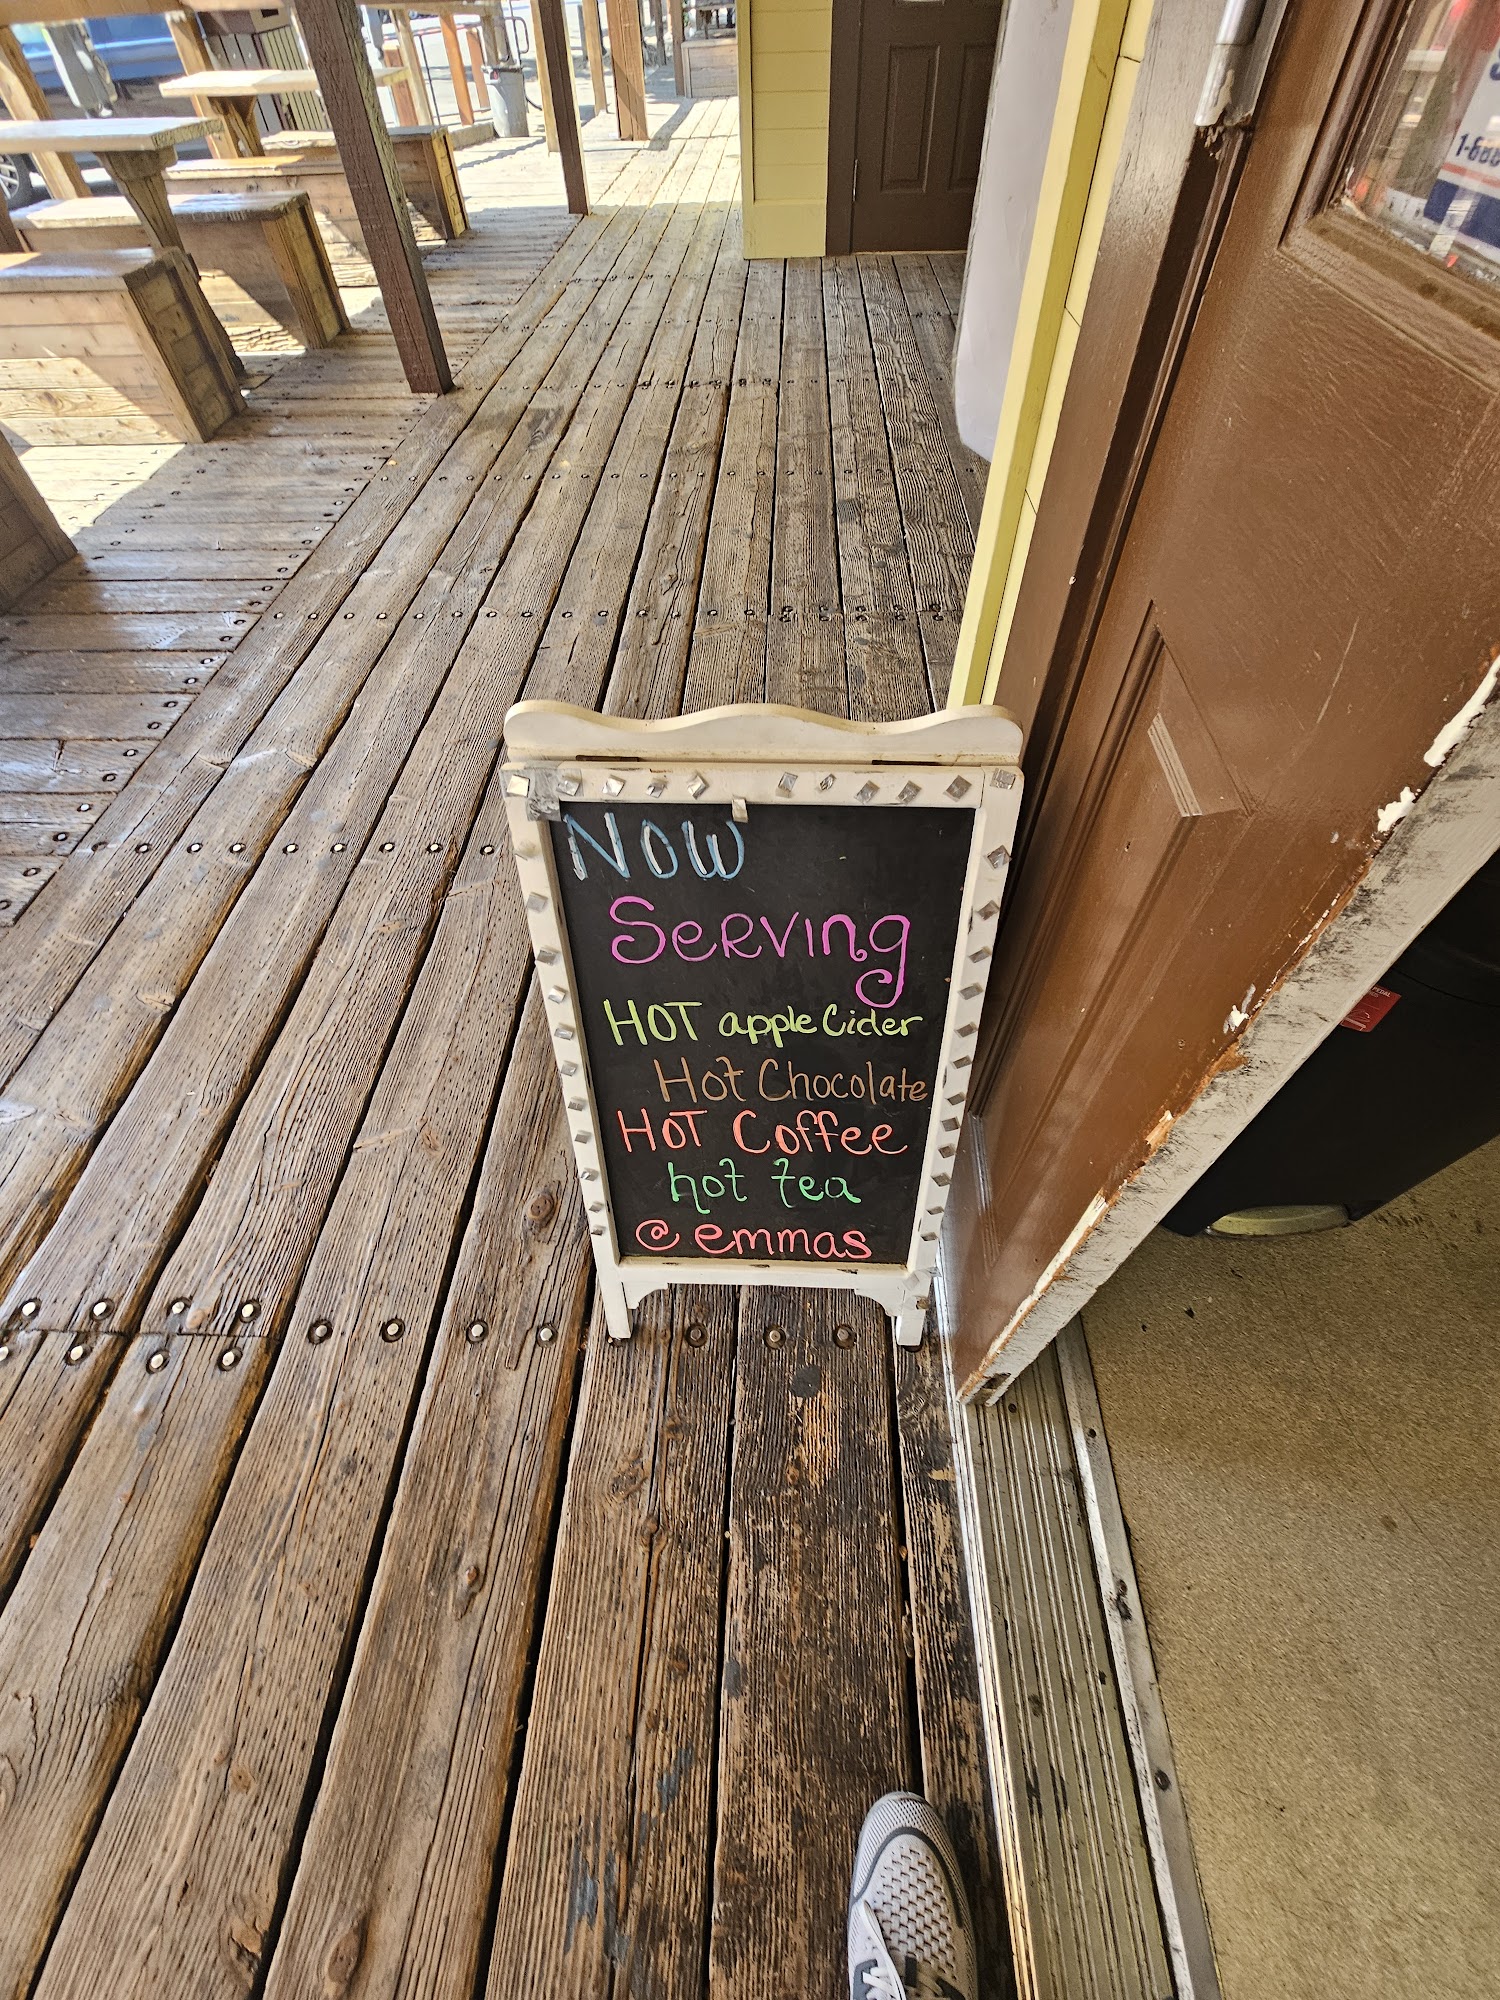 Now
Serving
HOT apple Cider
Hot Chocolate
HOT Coffee
hot tea
@ emmas